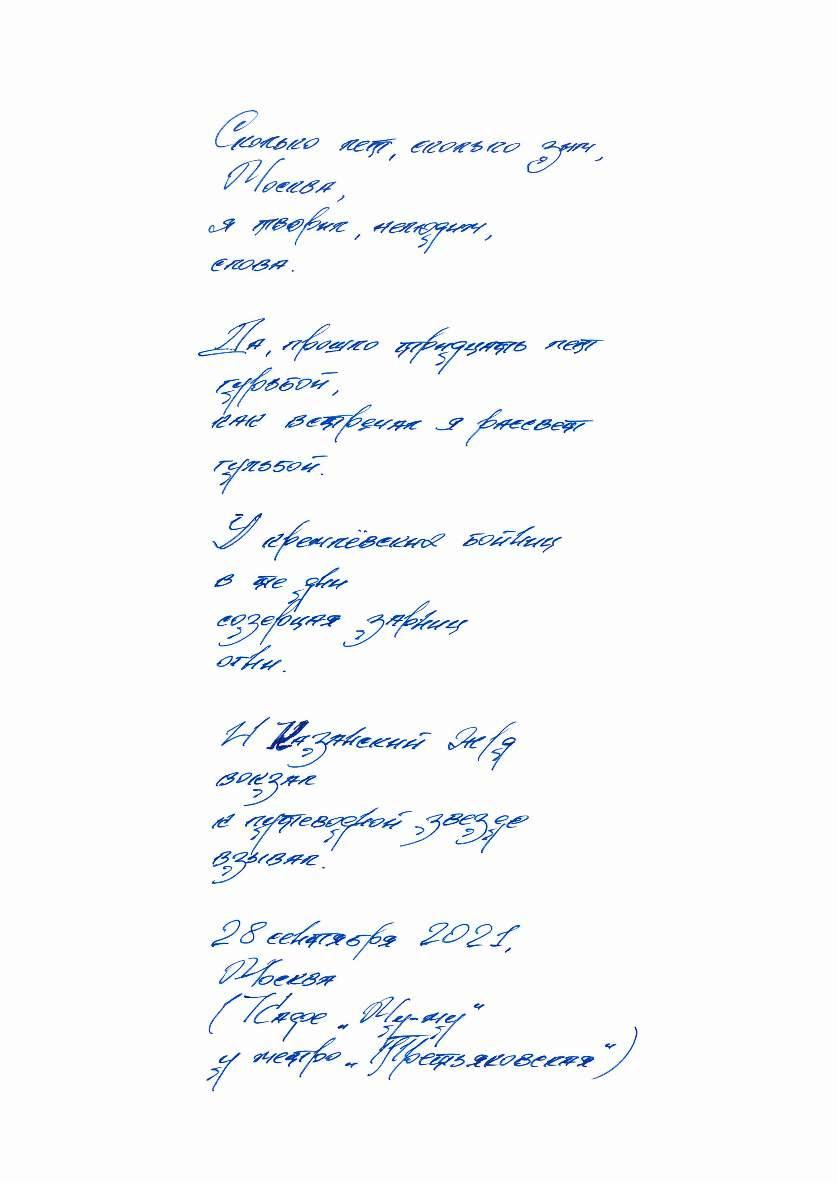 Сколько лет, сколько зим,
Москва,
я творил, нелюдим,
слова.
Да, прошло тридцать лет
гурьбой,
как встречал я рассвет
гульбой.
У кремлёвских бойниц
в те дни
созерцая зарниц
огни.
И Казанский ж/д
вокзал
к путеводной звезде
взывал.
28 сентября 2021,
Москва
(Кафе „Му-му“
у метро „Третьяковская“)